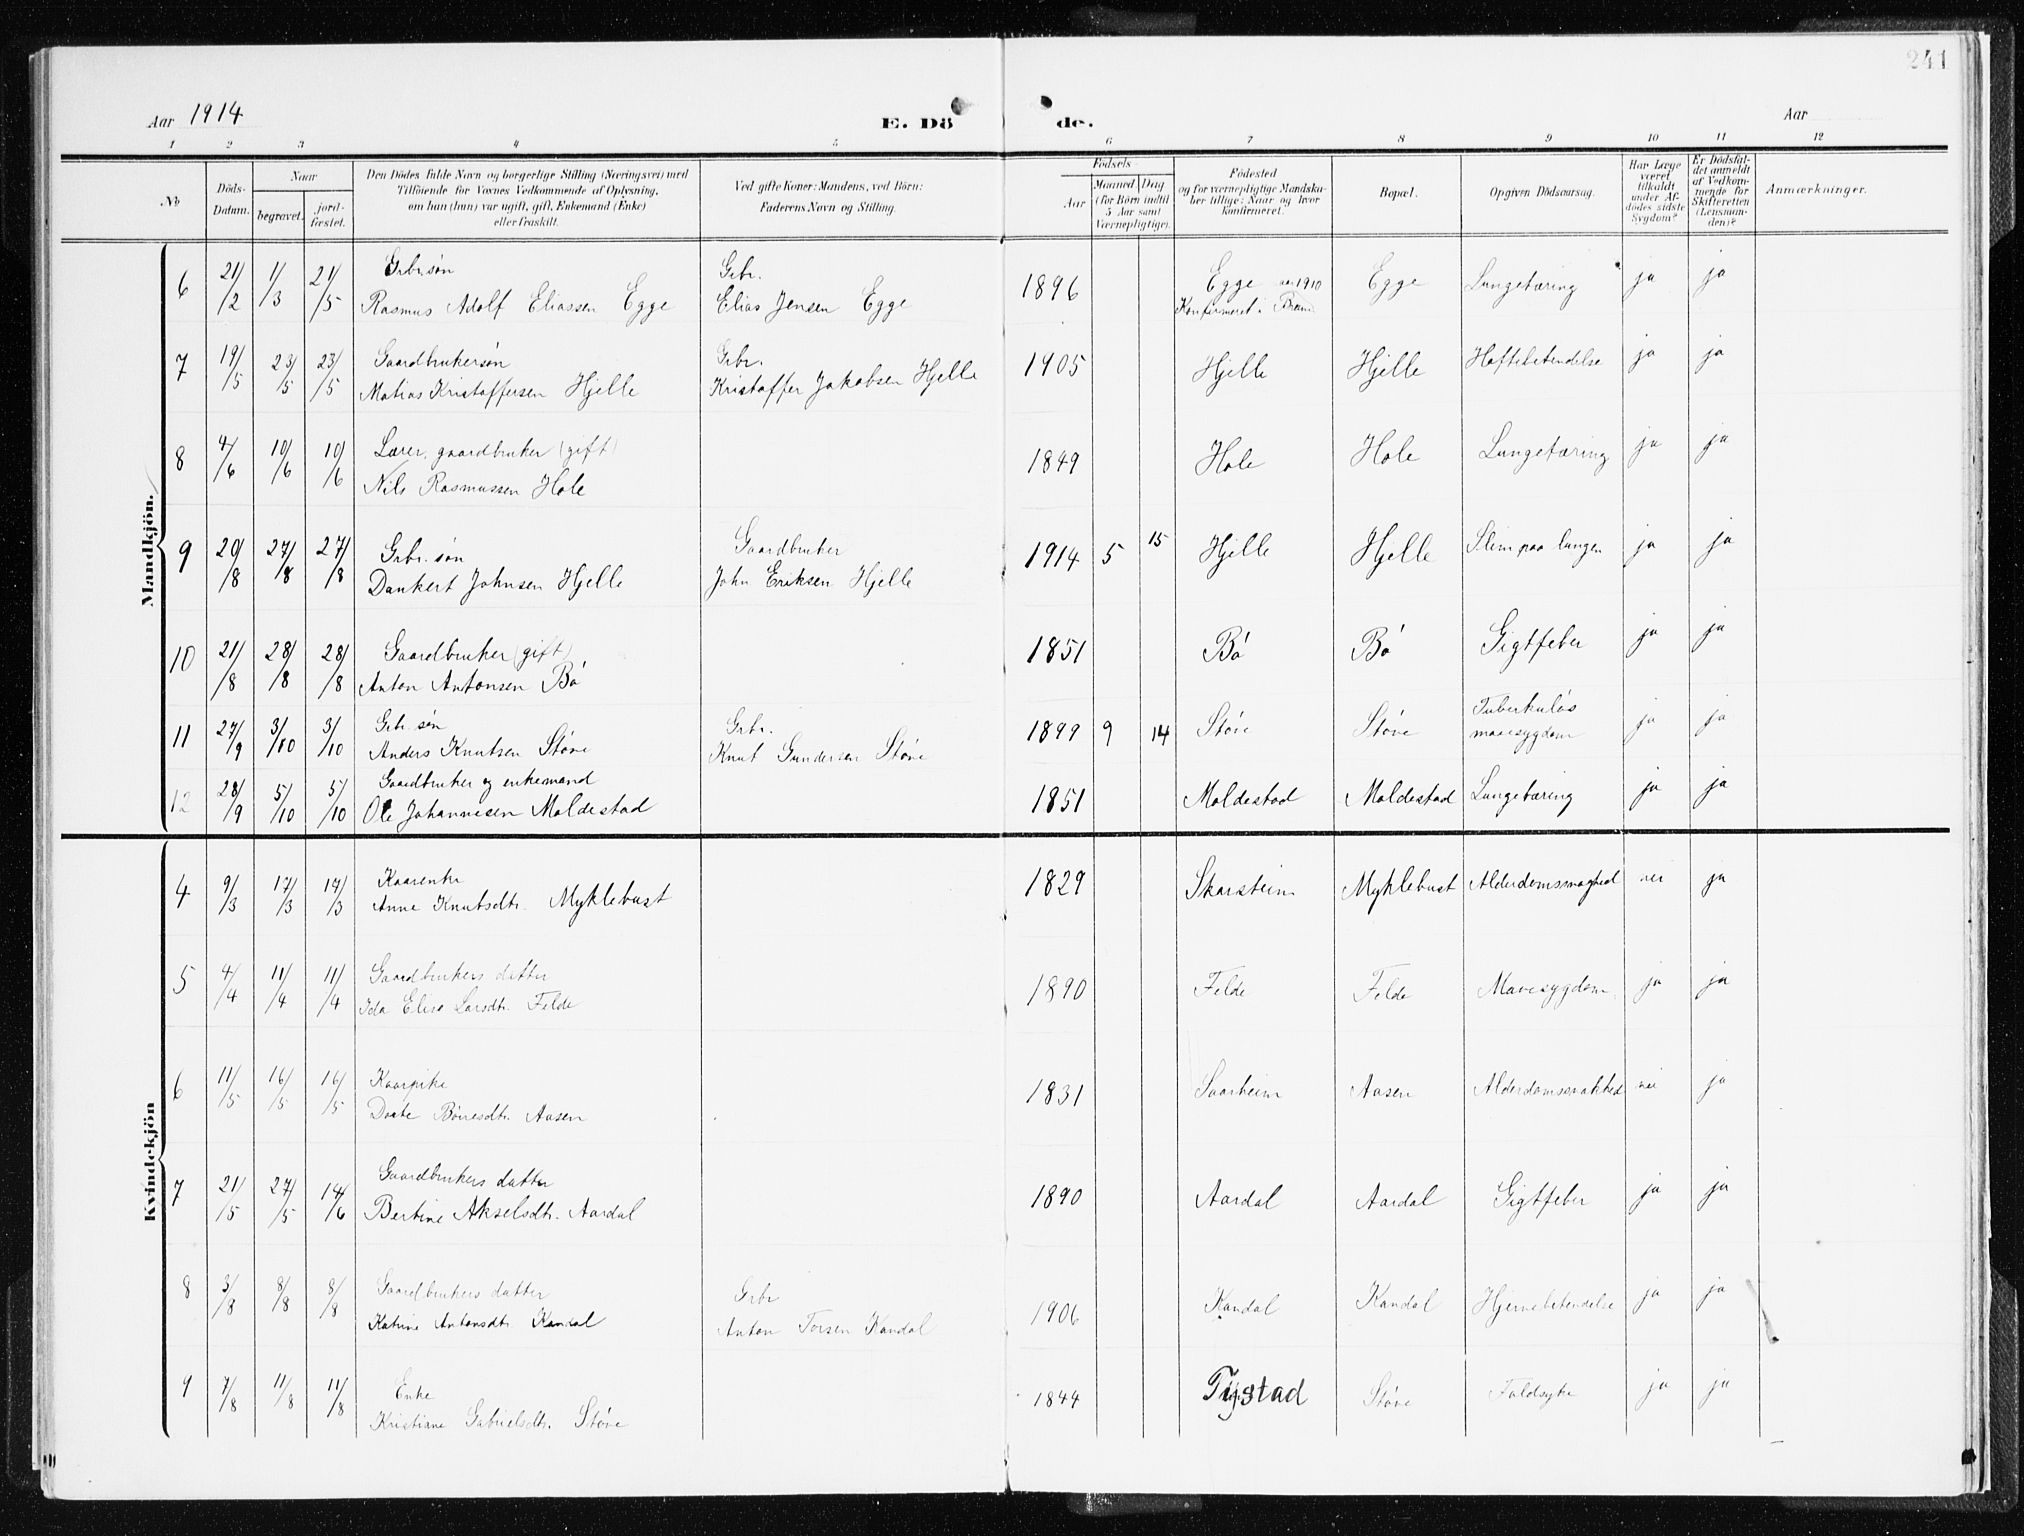 241
Aar 1914
E. Dö de.
Aar
1 2 3 4 5 6 7 8 9 10 11 12
No
Döds-Datum.
Naar
begravet.
jord-fæstet.
Den Dödes fulde Navn og borgerlige Stilling (Næringsvei) med
Tilföiende for Voxnes Vedkommende af Oplysning,
om han (hun) var ugift, gift, Enkemand (Enke)
eller fraskilt.
Ved gifte Koner: Mandens, ved Börn:
Faderens Navn og Stilling.
Födsels-
Aar
Maaned Dag
(for Börn indtil
5 Aar samt
Værnepligtige).
Födested
og for værnepligtige Mandska-
ber tillige: Naar og hvor
konfirmeret.
Bopæl.
Opgiven Dödsaarsag.
Har Læge
været
tilkaldt
under Af-
dödes sidste
Sygdom?
Er Dödsfal-
det anmeldt
af Vedkom-
mende for
Skifteretten
(Lensman-
den)?
Anmærkninger.
Mandkjön.
6 21/2 1/3 21/5 Grbr. søn Grbr. 1896 Egge 1910 Egge Lungetæring ja ja
Rasmus Adolf Eliassen Egge Elias Jensen Egge Konfirmeret i
7 19/5 23/5 23/5 Gaardbrukersøn Grbr. 1905 Hjelle Hjelle Hoftebetendelse ja ja
Matias Kristoffersen Hjelle Kristoffer Jakobsen Hjelle
8 4/6 10/6 10/6 Lærer, gaardbruker (gift) 1849 Hole Hole Lungetæring ja ja
Nils Rasmussen Hole
9 20/8 27/8 27/8 Grbr. søn Gaardbruker 1914 5 15 Hjelle Hjelle Slim paa lungen ja ja
Dankert Johnsen Hjelle John Eriksen Hjelle
10 21/8 28/8 28/8 Gaardbruker (gift) 1851 Bø Bø Gigtfeber ja ja
Anton Antonsen Bø
11 27/9 3/10 3/10 Grbr. søn Grbr. 1899 9 14 Støve Støve Tuberkuløs mavesygdom ja ja
Anders Knutsen Støve Knut Gundersen Støve
12 28/9 5/10 5/10 Gaardbruker og enkemand 1851 Moldestad Moldestad Lungetæring ja ja
Ole Johannesen Moldestad
Kvindekjön
4 9/3 17/3 17/3 Kaarenke 1829 Skarstein Myklebust nei ja
Anne Knutsdtr. Myklebust
5 4/4 11/4 11/4 Gaardbrukers datter 1890 Felde Felde Mavesygdom ja ja
Ida Elise Larsdtr. Felde
6 11/5 16/5 16/5 Kaarpike 1831 Saarheim Aasen Alderdomssvakhed nei ja
Dorte Børresdtr. Aasen
7 21/5 27/5 14/6 Gaardbrukers datter 1890 Aardal Aardal Gigtfeber ja ja
Bertine Akselsdtr. Aardal
8 3/8 8/8 8/8 Gaardbrukers datter Grbr 1906 Kandal Kandal Hjernebetendelse ja ja
Katrine Antonsdtr. Kandal Anton Torsen Kandal
9 7/8 11/8 11/8 Enke 1844 Tystad Støve Faldsyke ja ja
Kristiane Gabrielsdtr. Støve